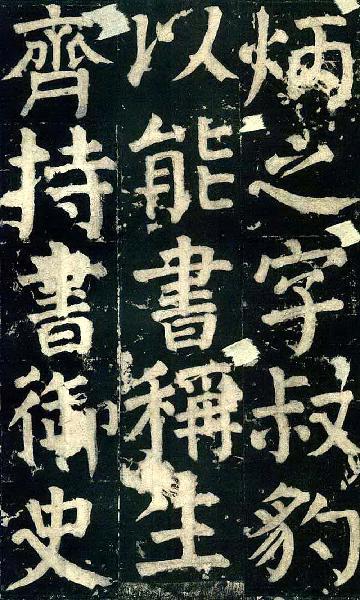 炳之字叔豹
以能書稱生
齊持書御史